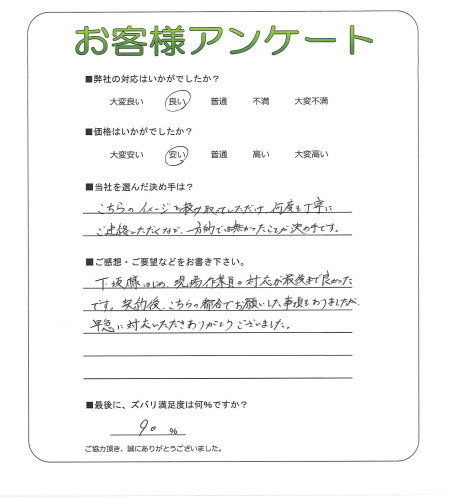 お客様アンケート
■弊社の対応はいかがでしたか?
大変良い 良い 普通 不満 大変不満
■価格はいかがでしたか?
大変安い 安い 普通 高い 大変高い
■当社を選んだ決め手は?
こちらのイメージを教え取っていただけ、何度も丁寧に
ご連絡いただくなど、一方的では無かったことが決め手です。
■ご感想・ご要望などをお書き下さい。
下坂様はじめ、現場作業員の対応が最後まで良かった
です。契約後、こちらの都合でお願いした事項もありましたが、
早急に対応いただきありがとうございました。
■最後に、ズバリ満足度は何%ですか?
90 %
ご協力頂き、誠にありがとうございました。